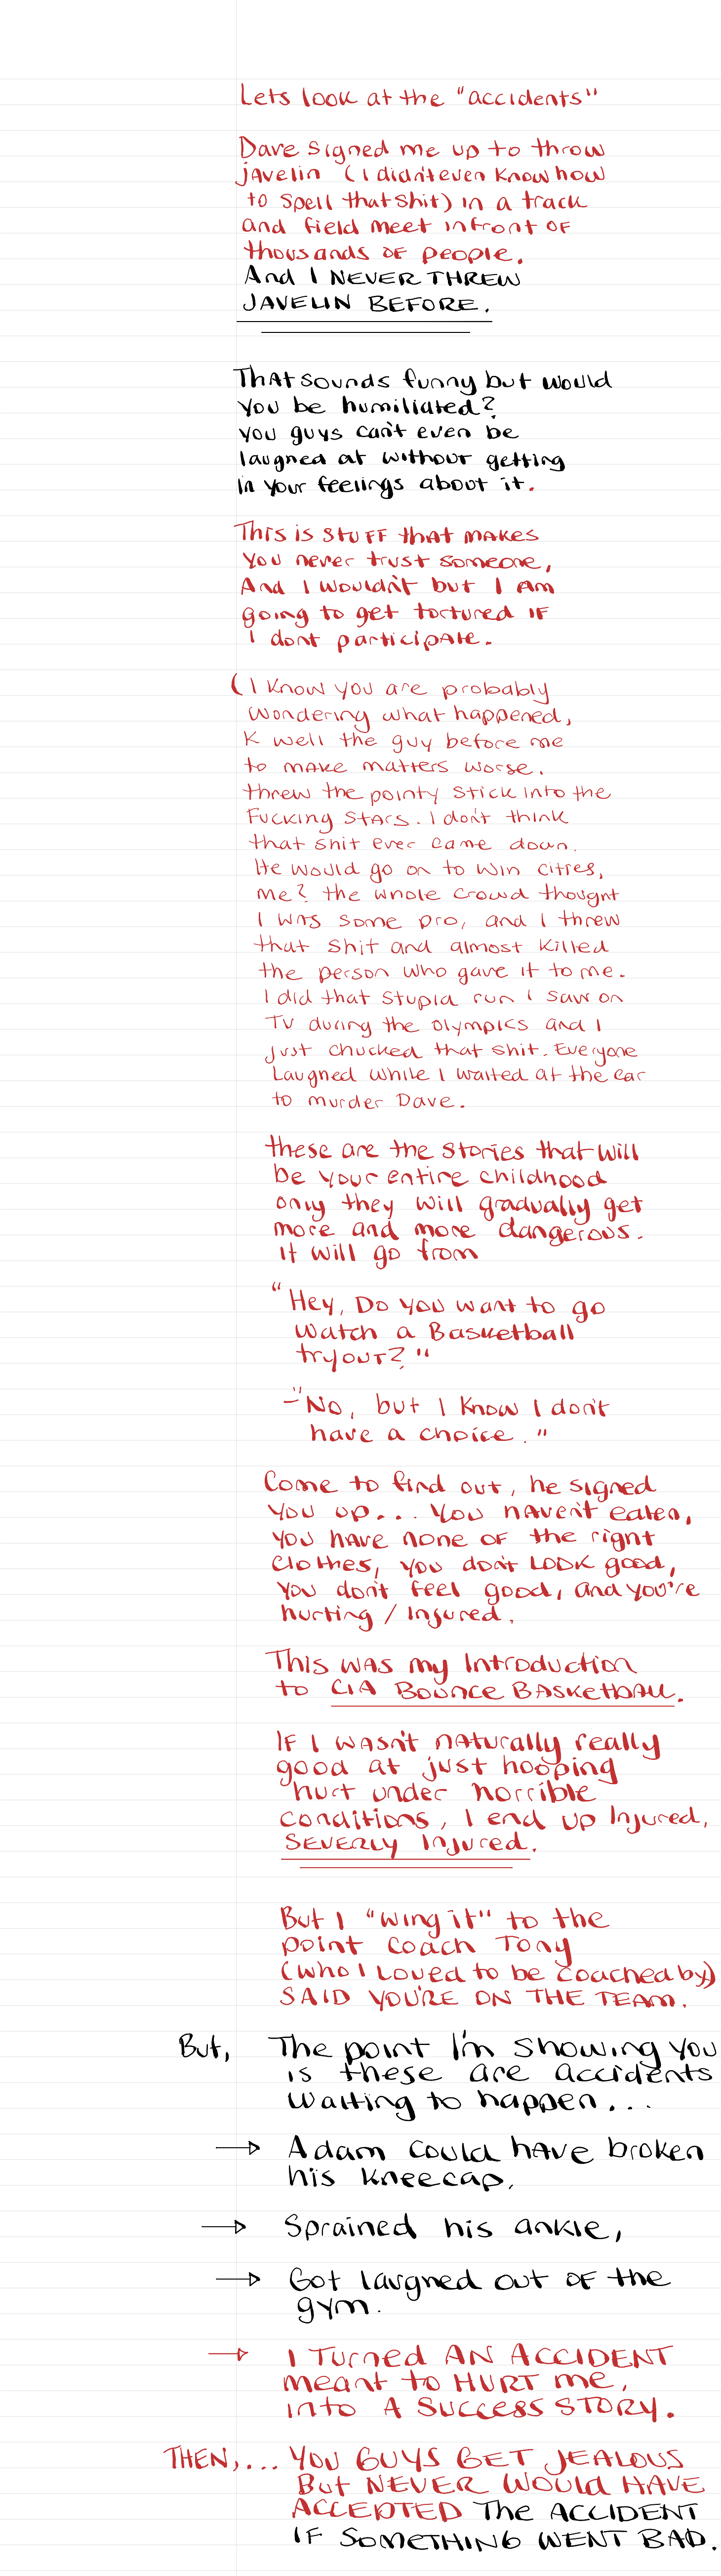 Lets look at the "accidents"
Dave signed me up to throw
javelin (I didn't even know how
to spell that shit) in a track
and field meet infront of
thousands of people.
And I NEVER THREW
JAVELIN BEFORE.
That sounds funny but would
you be humiliated?
you guys can't even be
laughed at without getting
in your feelings about it.
This is STUFF that MAKES
you never trust someone,
And I wouldn't but I am
going to get tortured IF
I dont participate.
(I know you are probably
wondering what happened,
K well the guy before me
to make matters worse.
threw the pointy stick into the
Fucking Stars. I don't think
that shit ever came down.
He would go on to win cities,
me? the whole crowd thought
I was some pro, and I threw
that shit and almost killed
the person who gave it to me.
I did that stupid run I saw on
TV during the olympics and I
just chucked that shit. Everyone
Laughed while I waited at the car
to murder Dave.
these are the stories that will
be your entire childhood
only they will gradually get
more and more dangerous.
it will go from
"Hey, Do you want to go
watch a Basketball
tryout?"
-"No, but I know I don't
have a choice."
Come to find out, he signed
you up... You haven't eaten,
you have none of the right
clothes, you don't look good,
you don't feel good, and you're
hurting / Injured.
This was my Introduction
to CIA BOUNCE BASKETBALL.
IF I wasn't naturally really
good at just hooping
hurt under horrible
conditions, I end up Injured,
SEVERLY Injured.
But I "wing it" to the
point Coach Tony
(who I Loved to be coached by)
SAID YOU'RE ON THE TEAM.
But, The point I'm showing you
is these are accidents
waiting to happen...
→ Adam could have broken
his kneecap.
→ Sprained his ankle,
→ Got laughed out of the
gym.
→ I Turned AN ACCIDENT
meant to HURT me,
into A SUCCESS STORY.
THEN,... YOU GUYS GET JEALOUS
But NEVER WOULD HAVE
ACCEPTED The ACCIDENT
IF SOMETHING WENT BAD.